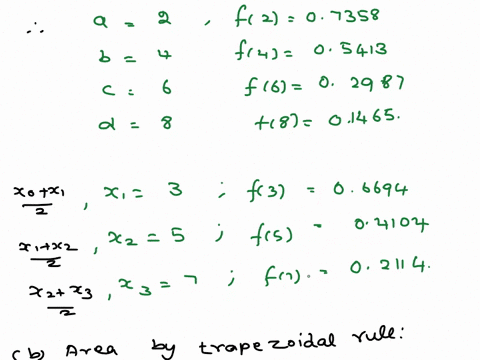 ∴ a = 2 , f(2) = 0.7358
b = 4 f(4) = 0.5413
c = 6 f(6) = 0.2987
d = 8 f(8) = 0.1465.
x0+x1/2 , x1 = 3 ; f(3) = 0.6694
x1+x2/2 , x2 = 5 ; f(5) = 0.4104
x2+x3/2 , x3 = 7 ; f(7) = 0.2114.
(b) Area by trapezoidal rule: